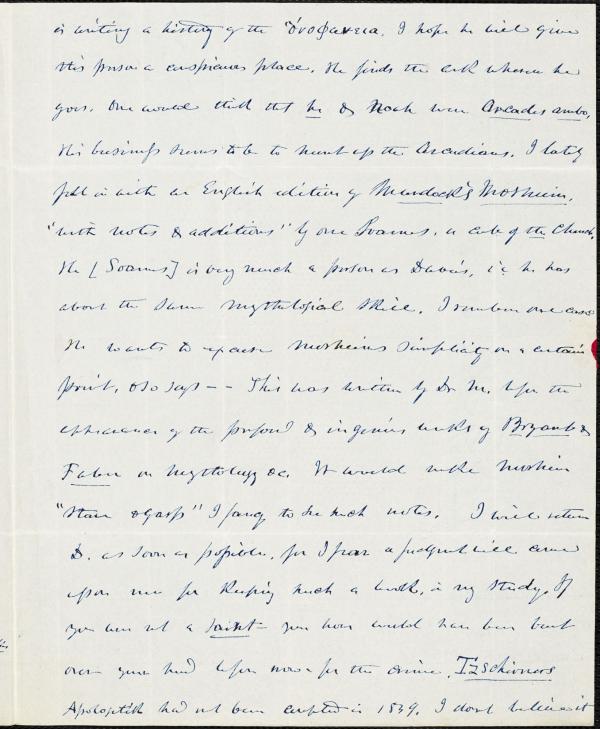 is writing a history of the ὀνοφανεια. I hope he will give
this person a conspicuous place. He finds the ark where he
goes. One would think tht he & Noah were Arcades ambo,
His business seems to be to hunt up the Arcadians. I lately
fell in with an English edition of Murdock's Mosheim,
"with notes & additions" by one Soames, a cub of the Church.
He [Soames] is very much a person as Davies, i.e. he has
about the same mythological skill. I remember one case
He wants to expose Mosheims simplicity on a certain
point, & so says -- This was written by Dr. M. before the
appearance of the profound & ingenious works of Bryant &
Faber on Mythology &c. It would make Mosheim
"stare & gasp" I fancy to see such notes. I will return
D. as soon as possible, for I fear a judgment will come
upon me for keeping such a book, in my study. If
you were not a saint your house would have been burnt
over your head before now for the crime. Tzschirners
Apologetik had not been completed in 1839. I dont believe it